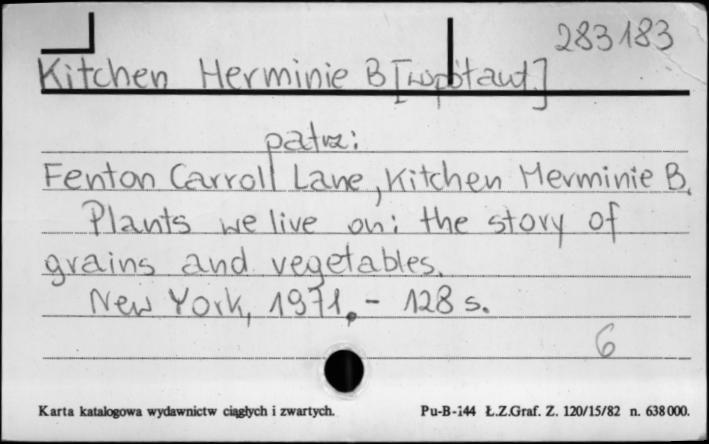 283183
Kitchen Herminie B [współaut.]
patrz:
Fenton Carroll Lane, Kitchen Herminie B.
Plants we live on: the story of
grains and vegetables.
New York, 1971. - 128 s.
6
Karta katalogowa wydawnictw ciągłych i zwartych. Pu-B-144 Ł.Z.Graf. Z. 120/15/82 n. 638000.